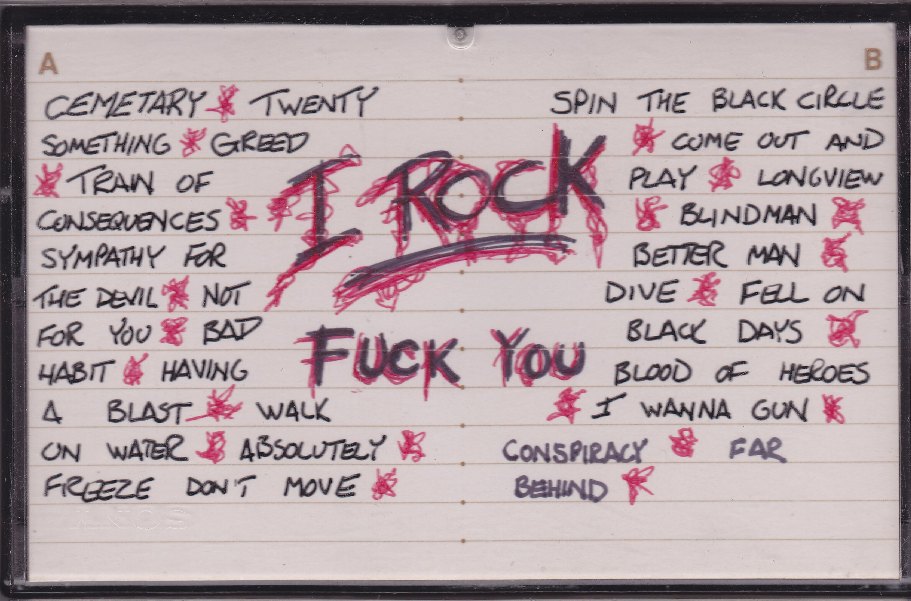 A
CEMETARY * TWENTY
SOMETHING * GREED
* TRAIN OF
CONSEQUENCES *
SYMPATHY FOR
THE DEVIL * NOT
FOR YOU * BAD
HABIT * HAVING
A BLAST * WALK
ON WATER * ABSOLUTELY *
FREEZE DON'T MOVE *
I ROCK
FUCK YOU
B
SPIN THE BLACK CIRCLE
* COME OUT AND
PLAY * LONGVIEW
* BLINDMAN *
BETTER MAN *
DIVE * FELL ON
BLACK DAYS *
BLOOD OF HEROES
* I WANNA GUN *
CONSPIRACY * FAR
BEHIND *